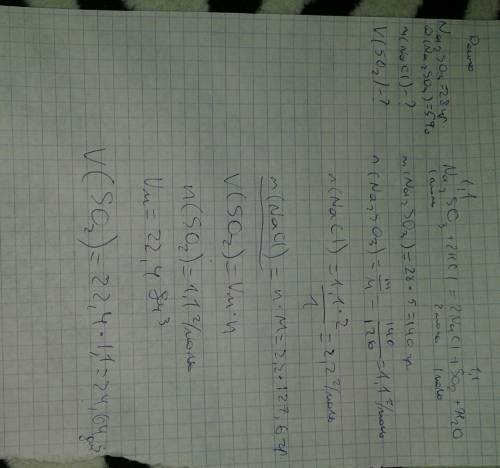 Дано
Na2SO3 = 28 гр
ω(Na2SO3) = 5%
m(NaCl) - ?
V(SO2) - ?
1,1 1,1
Na2SO3 + 2HCl = 2NaCl + SO2 + H2O
1 моль 2 моль 1 моль
m(Na2SO3) = 28 · 5 = 140 гр
n(Na2SO3) = m/M = 140/126 = 1,1 г/моль
n(NaCl) = 1,1 · 2 / 1 = 2,2 г/моль
m(NaCl) = n · M = 2,2 · 127,6 гр
V(SO2) = Vm · n
n(SO2) = 1,1 г/моль
Vm = 22,4 дм³
V(SO2) = 22,4 · 1,1 = 24,64 дм³